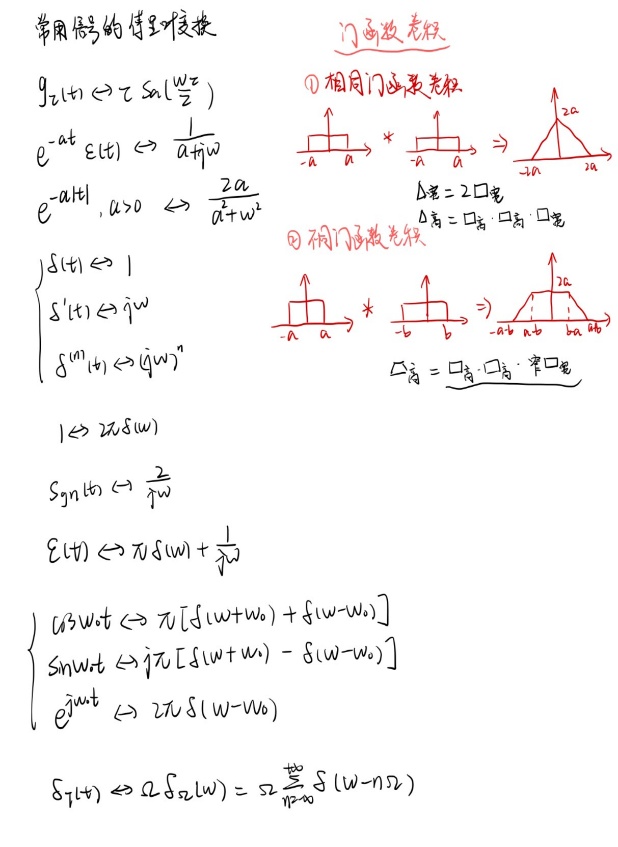 常用信号的傅里叶变换
g_τ(t) ↔ τ Sa(wτ/2)
e^{-at} ε(t) ↔ 1/(a+jw)
e^{-a|t|}, a>0 ↔ 2a/(a²+w²)
δ(t) ↔ 1
δ'(t) ↔ jw
δ^{(n)}(t) ↔ (jw)^n
1 ↔ 2πδ(w)
Sgn(t) ↔ 2/jw
ε(t) ↔ πδ(w) + 1/jw
cosw₀t ↔ π[δ(w+w₀) + δ(w-w₀)]
sinw₀t ↔ jπ[δ(w+w₀) - δ(w-w₀)]
e^{jw₀t} ↔ 2πδ(w-w₀)
δ_T(t) ↔ Ωδ_Ω(w) = Ω∑_{n=-∞}^{+∞} δ(w-nΩ)
门函数卷积
① 相同门函数卷积
-a a * -a a ⇒ -2a 2a 2a
△宽 = 2□宽
△高 = □高·□高·□宽
② 不同门函数卷积
-a a * -b b ⇒ -a-b a-b b-a a+b 2a
⏢高 = □高·□高·窄□宽